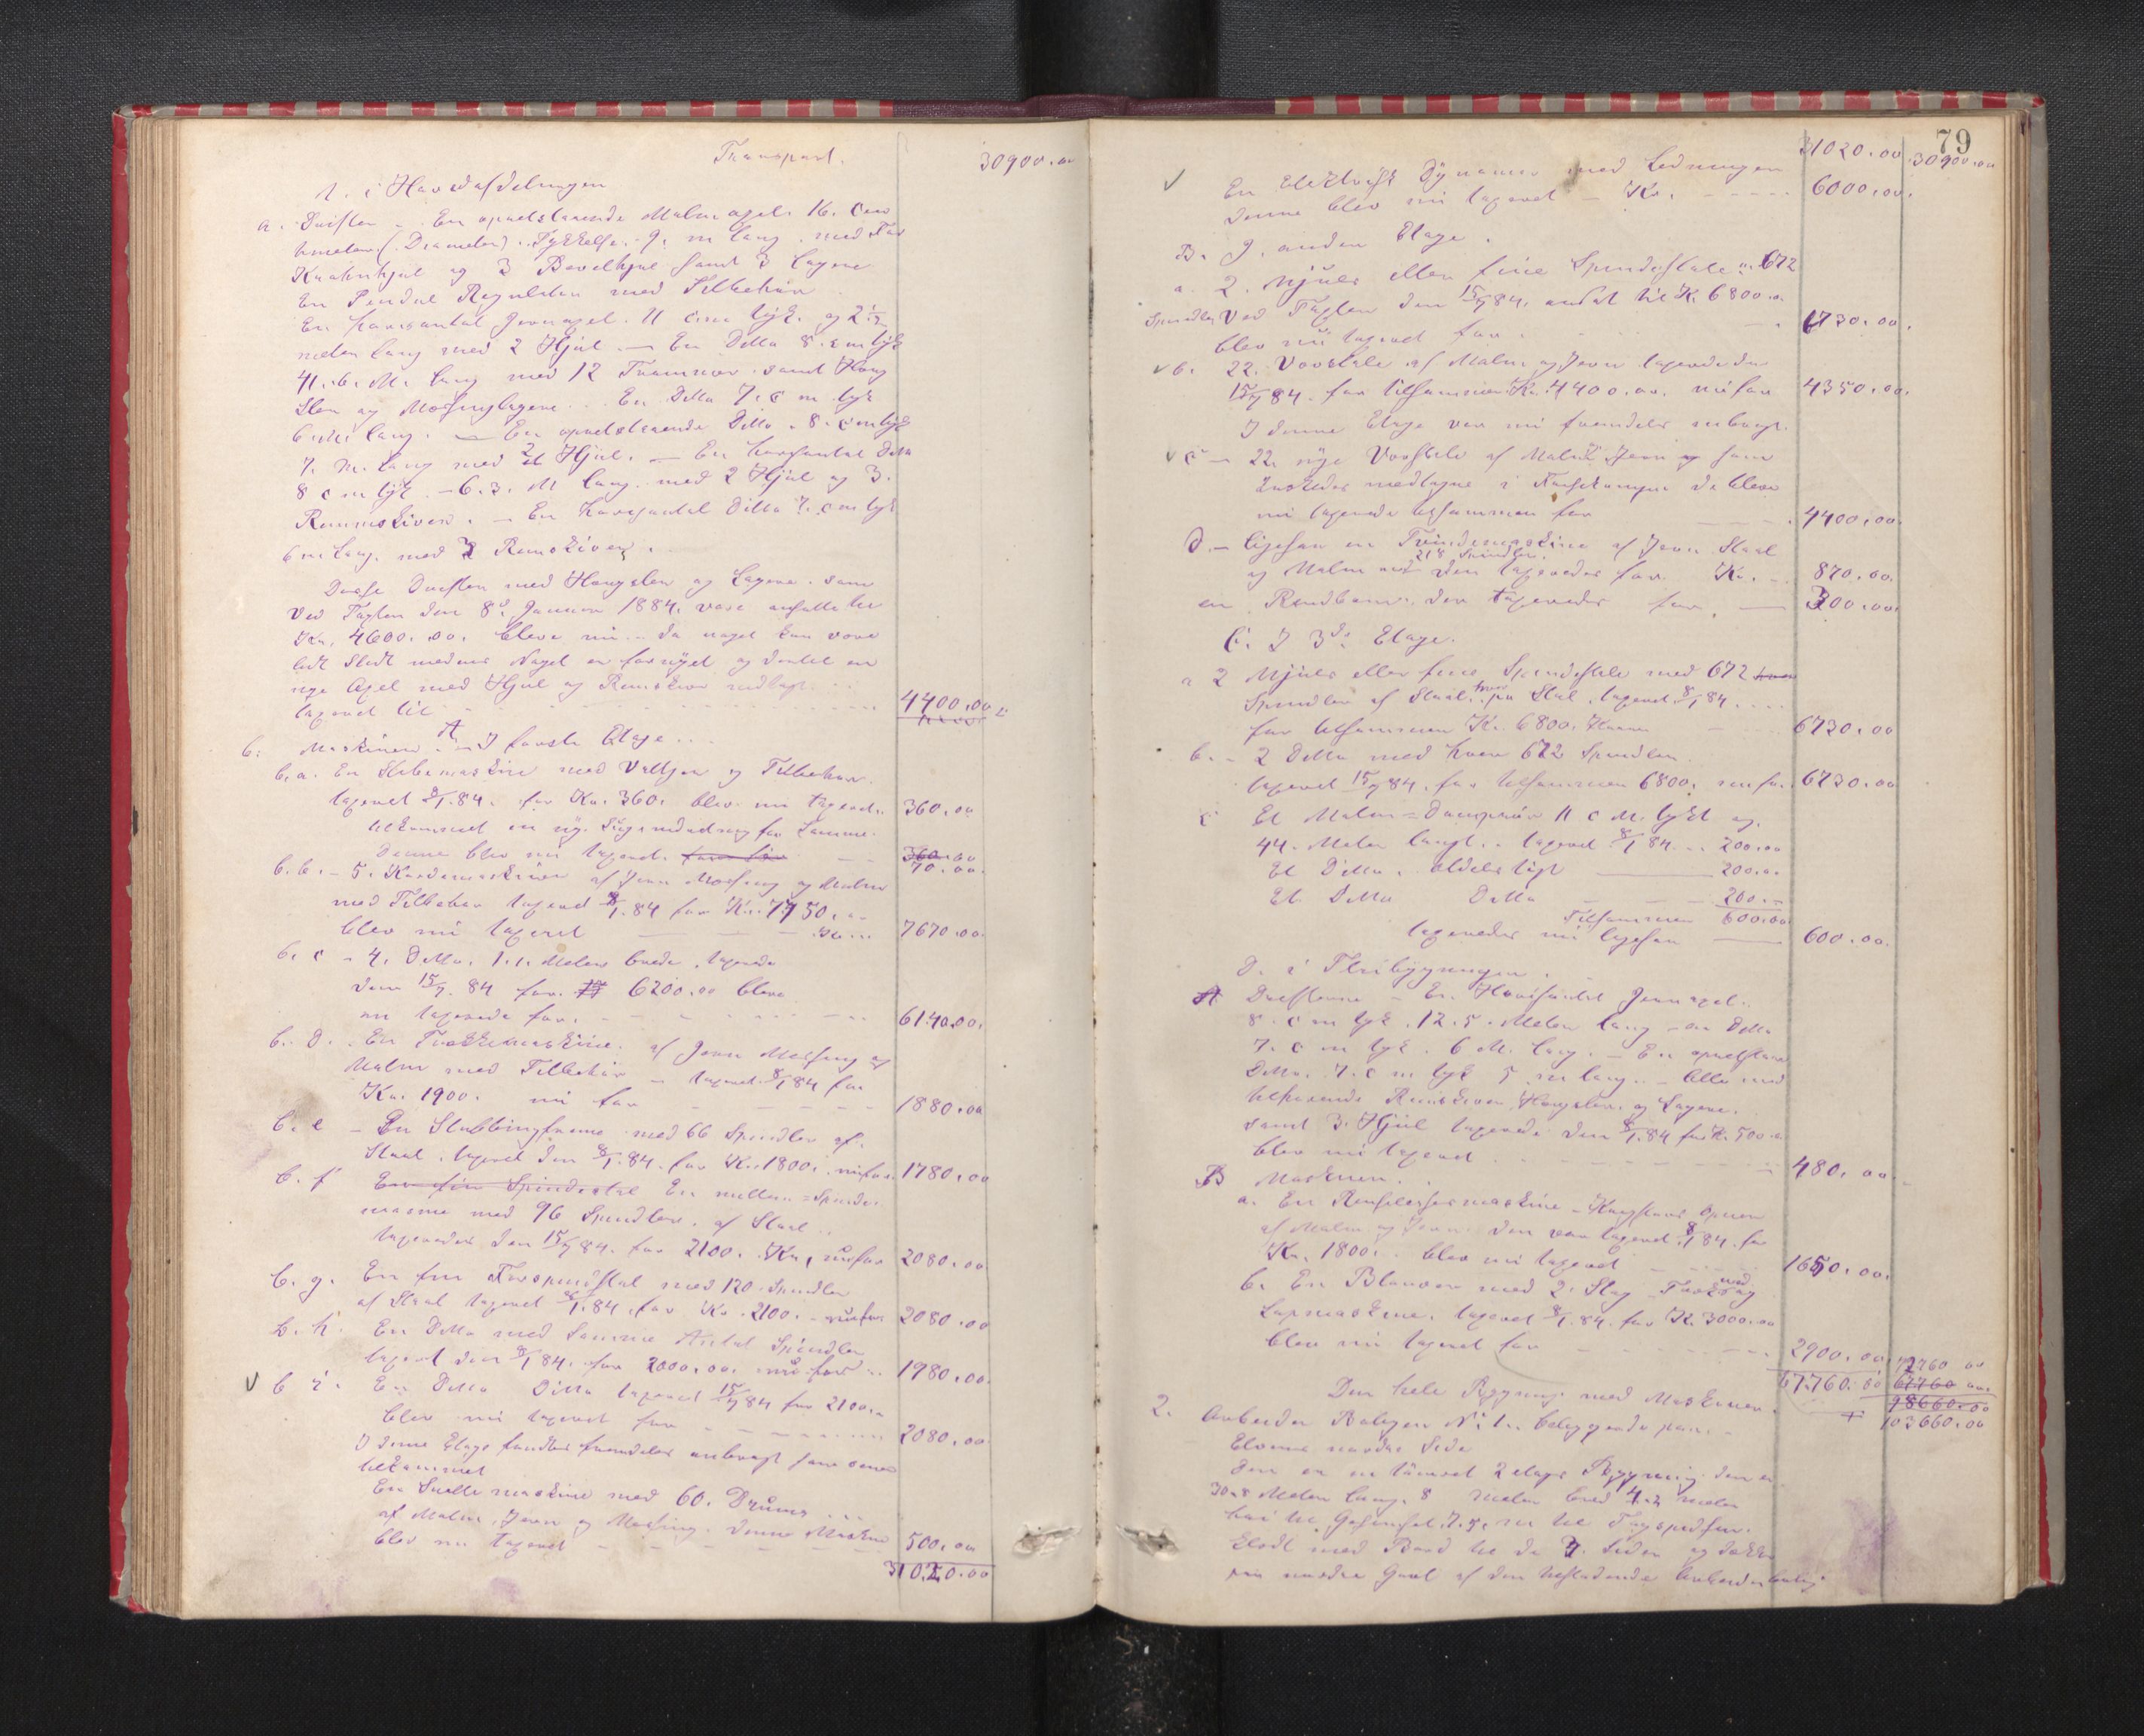 Transport. 30900.00
1. i Hovedafdelingen
a. Driften. En opretstaaende Malm axel. 16. Cen
timeter (Diameter). Tykkelse. 9. m lang. med Tar
Kuahnhjul og 3 Bevelhjul samt 3 Lagere
En Pendul Regulator med Tilbehør
En horisontal Jernaxel. 11 cm tyk. og 2 1/2
meter lang med 2 Hjul. — En Ditto 8. cm tyk
41.6. M. lang med 12 Trommer samt Hæng
Sler og Messinglagere. En Ditto 7. c m tyk
6 m. lang. — En opretstaaende Ditto. 8. cm tyk
7. m. lang med 2 Hjul. — En horisontal Ditto
8 c m tyk. — 6.3. M lang. med 2 Hjul og 3.
Remmskiver. — En horisontal Ditto 7. c m tyk
6 m lang. med 3 Remskiver.
Disse Driften med Hængsler og Lagere. som
ved Taxten den 8de Januar 1884. vare ansatte til
Kr. 4600.00. bleve nu - da noget kan være
lidt slidt medens Noget er fornyet og dertil en
nye Axel med Hjul og Remskive indlagt
taxeret til 4400.00
b. Maskiner. A I første Etage
b. a. En Slibemaskine med Valtser og Tilbehør.
taxeret 8/1.84. for Kr. 360. blev nu taxeret. 360.00
tilkommet en ny. for Samme.
Denne blev nu taxeret. 70.00.
b. b. – 5. Kardemaskiner af Jern Messing og Malm
med Tilbehør taxeret 8/1.84 for Kr. 7750.
blev nu taxeret 7670.00.
b. c – 4. Ditto. 1.1. Meter brede. taxerede
den 15/7. 84 for. 6200.00 bleve
nu taxerede for. 6140.00.
b. d. En Trækkemaskine. af Jern Messing og
Malm med Tilbehør – taxeret. 8/1 84 for
Kr. 1900. nu for 1880.00
b. e – En Slubbingframe med 66 Spindler af.
Staal. taxeret den 8/1.84. for Kr. 1800. nu for 1780.00
b. f En fin Spindestol En mellem=Spinde
med 96 Spindler. af Staal.
taxeredes den 15/7 84. for 2100. Kr, nu for 2080.00
b. g. En fin Forspindstol med 120 Spindler
af Staal taxeret 8/1.84. for Kr. 2100. nu for 2080.00
b. h. En Ditto med Samme Antal Spindler
taxeret den 8/1 84. for 2000.00. nu for 1980.00.
b i. En Ditto Ditto taxeret 15/7 84 for 2100.
blev nu taxeret for 2080.00
I denne Etage fandtes fremdeles anbragt som senere
tilkommet
En Snellemaskine med 60. Drums
af Malm, Jern og Messing. denne Maskine
blev nu taxeret 500.00
31020.00
79
31020.00 30900.00
En Elektrisk Dynamo med Ledninger
denne blev nu taxeret – Kr. 6000.00.
B. I. anden Etage.
a. 2. Mjuler eller fine Spindestole m. 672
Spindler Ved Taxten den 15/7 84. ansat til Kr. 6800.
blev nu taxeret for. 6730.00.
b. 22. Vævstole af Malm og Jern taxerede den
15/7 84. for tilsammen Kr. 4400.00. nu for 4350.00.
I denne Etage var nu fremdeles anbragt.
c – 22. nye Vævstole af Malm Jern og som
ønskedes medtagne i Forsikringen de bleve
nu taxerede tilsammen for 4400.00.
d. – ligesaa en Tvindemaskine af Jern Staal
218 Spindler.
og Malm med den taxeredes for. Kr. 870.00.
en Rendbom. der taxeredes for. 300.00.
C. I 3de Etage.
a 2 Mjuler eller fine Spindestole med 672
Spindler af Staal. hver paa Stol. taxeret 8/1 84.
for tilsammen Kr. 6800. Kroner 6730.00
b. – 2 Ditto med hver 672 Spindler
taxeret 15/7 84. for tilsammen 6800. nu for 6730.00
c Et Malm=Damprør 11 c M. tykt og.
44. Meter langt. taxeret 8/1 84. 200.00
Et Ditto. aldeles ligt 200.00
Et. Ditto Ditto 200.–
Tilsammen 600.00
taxeredes nu ligesaa 600.00.
D. i Fløibygningen.
A Drifterne – En. Horisontal Jernaxel.
8. c m tyk. 12.5. Meter lang – en Ditto
7. c m tyk. 6 M. lang. – En opretstaa
Ditto. 7. c m tyk 5 m lang. – Alle med
tilhørende Remskiver, Hængsler. og Lagere.
samt 3. Hjul taxerede den 8/1.84 for K. 500.
blev nu taxeret 480.00
B Maskiner.
a. En Renselsesmaskine
af Malm og Jern. den var taxeret 8/1 84. for
Kr. 1800. blev nu taxeret 1650.00.
b. En Blauver med 2. Slag med
Lapmaskine. taxeret 8/1.84. for K. 3000.00
blev nu taxeret for 2900.00
67760.00
72760 00
67760 00.
98660.00
103660.00
Den hele Bygning med Maskiner.
2. Arbeider Boligen No 1. beliggende paa
Elvens nordre Side
Den er en tømret 2 etages Bygning. den er
30.8 Meter lang. 8 meter bred 4.2 meter
høi til Gesimset. 7.5. m til Tagspidsen.
klædt med Bord til de 3. Sider og dækket
paa nordre Gavl af den tilstødende Arbeiderbolig.